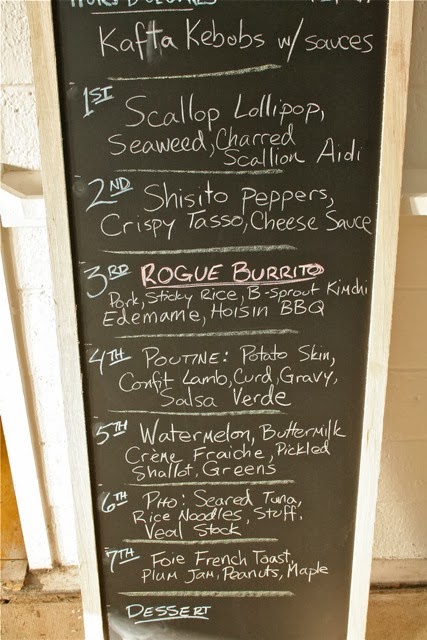 Kafta Kebobs w/ sauces
1ST Scallop Lollipop,
Seaweed, Charred
Scallion Aidi
2ND Shisito Peppers,
Crispy Tasso, Cheese Sauce
3RD ROGUE BURRITO
Pork, Sticky Rice, B-sprout Kimchi
Edemame, Hoisin BBQ
4TH Poutine: Potato Skin,
Confit Lamb, Curd, Gravy,
Salsa Verde
5TH Watermelon, Buttermilk
Crème Fraiche, Pickled
Shallot, Greens
6TH Pho: Seared Tuna,
Rice Noodles, Stuff,
Veal Stock
7TH Foie French Toast,
Plum Jam, Peanuts, Maple
DESSERT